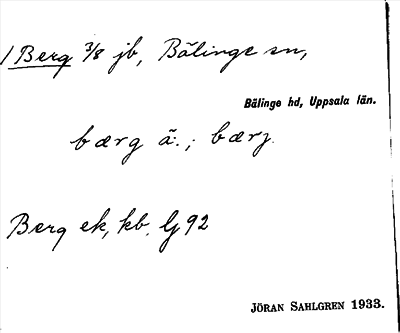 / Berg 3/8 jb, Bälinge sn,
Bälinge hd, Uppsala län.
bærg ä: ; bærj.
Berg ek, kb. Lj 92
JÖRAN SAHLGREN 1933.